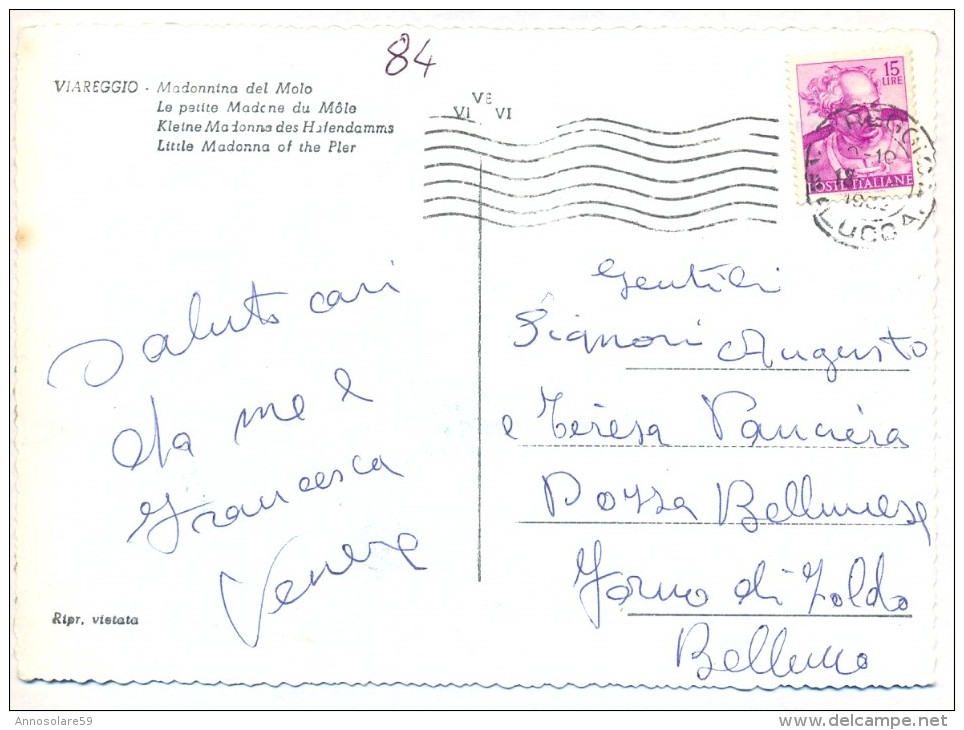 84
VIAREGGIO - Madonnina del Molo
Le petite Madone du Môle
Kleine Madonna des Hafendamms
Little Madonna of the Pier
VE
VI VI
15
LIRE
POSTE ITALIANE
LUCCA
Saluto cari
da me e
Francesca
Venere
Ripr. vietata
Gentili
Signori Augusto
e Teresa Panciera
Pozza Bellunese
Forno di Zoldo
Belluno
Annosolare59
delcampe.net